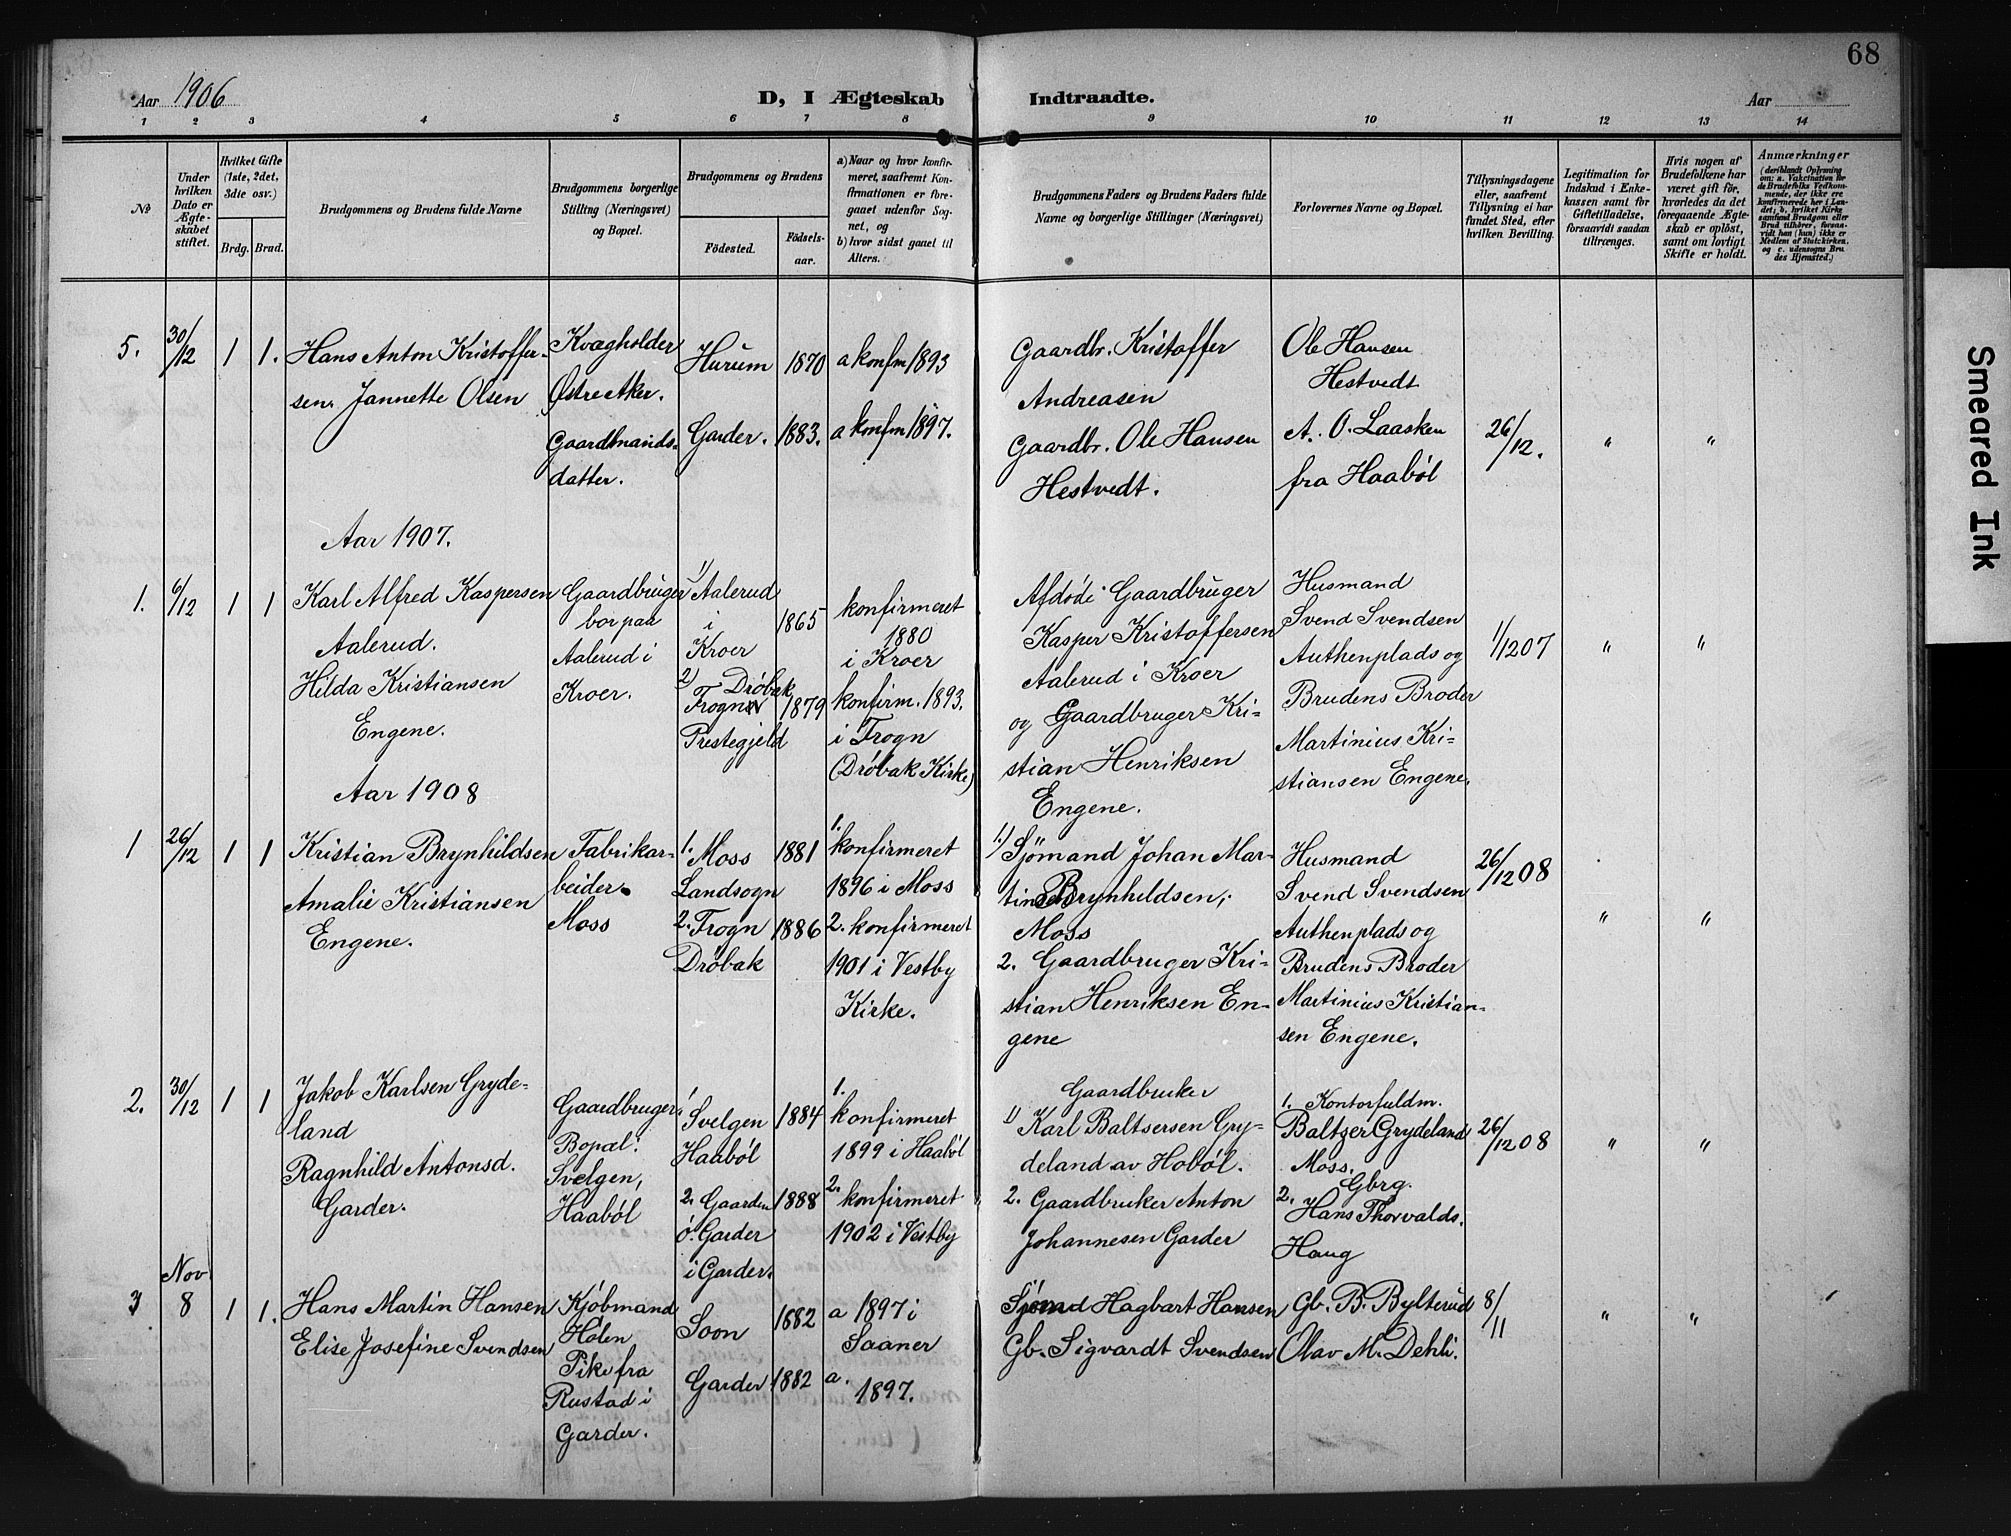 68
Aar 1906
D, I Ægteskab Indtraadte.
Aar
1 2 3 4 5 6 7 8 9 10 11 12 13 14
No
Under hvilken Dato er Ægteskabet stiftet.
Hvilket Gifte (1ste, 2det, 3die osv.)
Brdg. Brud.
Brudgommens og Brudens fulde Navne
Brudgommens borgerlige Stilling (Næringsvei) og Bopæl.
Brudgommens og Brudens
Födested. Födselsaar.
a) Naar og hvor konfirmeret, saafremt Konfirmationen er foregaaet udenfor Sognet, og
b) hvor sidst gaaet til Alters.
Brudgommens Faders og Brudens Faders fulde Navne og borgerlige Stillinger (Næringsvei)
Forlovernes Navne og Bopæl.
Tillysningsdagene eller, saafremt Tillysning ei har fundet Sted, efter hvilken Bevilling.
Legitimation for Indskud i Enkekassen samt for Giftetilladelse, forsaavidt saadan tiltrænges.
Hvis nogen af Brudefolkene har været gift för, hvorledes da det foregaaende Ægteskab er oplöst, samt om lovligt Skifte er holdt.
Anmærkninger (deriblandt Oplysning om: a. Vakcination for de Brudefolks Vedkommende, der ikke ere konfirmerede her i Landet; b, hvilket Kirkesamfund Brudgom eller Brud tilhörer, forsaavidt han (hun) ikke er Medlem af Statskirken, og c. udensogns Brudes Hjemsted.)
5. 30/12 1 1.
Hans Anton Kristoffer-
sen. Jannette Olsen
Kvægholder
Østre Aker.
Gaardmands-
datter.
Hurum 1870 a konfm 1893
Garder. 1883. a konfm 1897.
Gaardbr. Kristoffer
Andreasen
Gaardbr. Ole Hansen
Hestvedt.
Ole Hansen
Hestvedt
A. O. Laasken
fra Haaböl
26/12. " "
Aar 1907.
1. 6/12 1 1
Karl Alfred Kaspersen
Aalerud.
Hilda Kristiansen
Engene.
Gaardbruger
bor paa
Aalerud i
Kroer.
1) Aalerud
i
Kroer
1865
2) Dröbak
Frogn
Prestegjeld
1879
konfirmeret
1880
i Kroer
konfirm. 1893.
i Frogn
(Dröbak Kirke)
Afdöde Gaardbruger
Kasper Kristoffersen
Aalerud i Kroer
og Gaardbruger Kri-
stian Henriksen
Engene.
Husmand
Svend Svendsen
Authenplads og
Brudens Broder
Martinius Kri-
stiansen Engene.
1/12 07 " "
Aar 1908
1 26/12 1 1
Kristian Brynhildsen
Amalie Kristiansen
Engene.
Fabrikar-
beider
Moss
1. Moss
Landsogn
1881
2. Frogn
Dröbak
1886
1. konfirmeret
1896 i Moss
2. konfirmeret
1901 i Vestby
Kirke.
1.) Sjömand Johan Mar-
tinsen Brynhildsen,
Moss
2. Gaardbruger Kri-
stian Henriksen En-
gene
Husmand
Svend Svendsen
Authenplads og
Brudens Broder
Martinius Kristian-
sen Engene.
26/12 08 " "
2. 30/12 1 1
Jakob Karlsen Gryde-
land
Ragnhild Antonsd.
Garder.
Gaardbruger.
Bopæl:
Svelgen,
Haaböl
1 Svelgen
Haaböl
1884
2. Gaarden
ö. Garder
i Garder.
1888
1. konfirmeret
1899 i Haaböl
2. konfirmeret
1902 i Vestby
Gaardbruker
1) Karl Baltsersen Gry-
deland av Hoböl.
2. Gaardbruker Anton
Johannesen Garder
1. Kontorfuldm.
Baltzer Grydeland
Moss.
2. Gbrg.
Hans Thorvalds.
Haug
26/12 08 " "
3 Nov 8 1 1.
Hans Martin Hansen
Elise Josefine Svendsen
Kjöbmand
Holen
Pike fra
Rustad i
Garder.
Soon 1882
Garder 1882
a 1897 i
Saaner
a. 1897.
Sjømd Hagbart Hansen
Gb. Sigvardt Svendsen
Gb. B. Bylterud
Olav M. Dehli.
8/11 " "
Smeared Ink